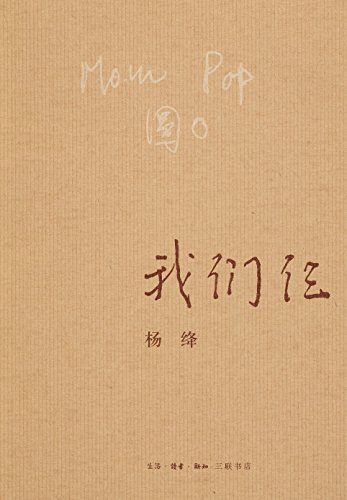 Mom Pop
圓O
我们仨
杨 绛
生活·读书·新知 三联书店